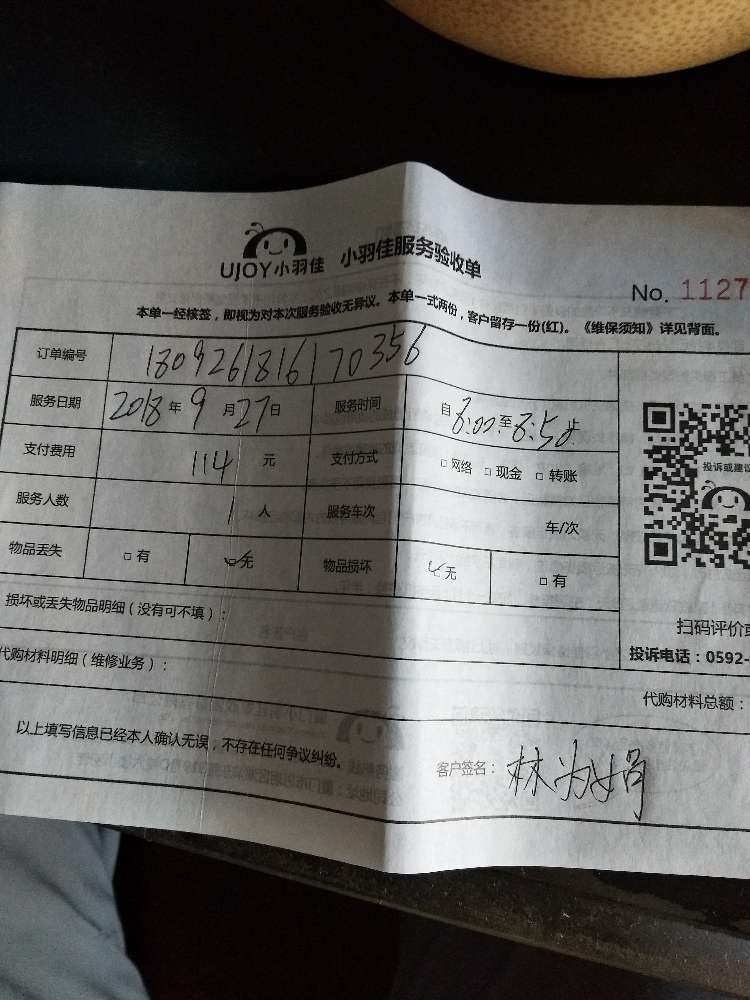 UJOY小羽佳 小羽佳服务验收单
No. 1127
本单一经核签，即视为对本次服务验收无异议。本单一式两份，客户留存一份(红)。《维保须知》详见背面。
订单编号 180926181617035​6
服务日期 2018年9月27日 服务时间 自8:00至8:50止
支付费用 114元 支付方式 □网络 □现金 □转账
服务人数 1人 服务车次 车/次
物品丢失 □有 □无 物品损坏 □无 □有
投诉或建议
扫码评价或
投诉电话：0592-
损坏或丢失物品明细（没有可不填）：
代购材料明细（维修业务）：
代购材料总额：
以上填写信息已经本人确认无误，不存在任何争议纠纷。
客户签名：林为娟